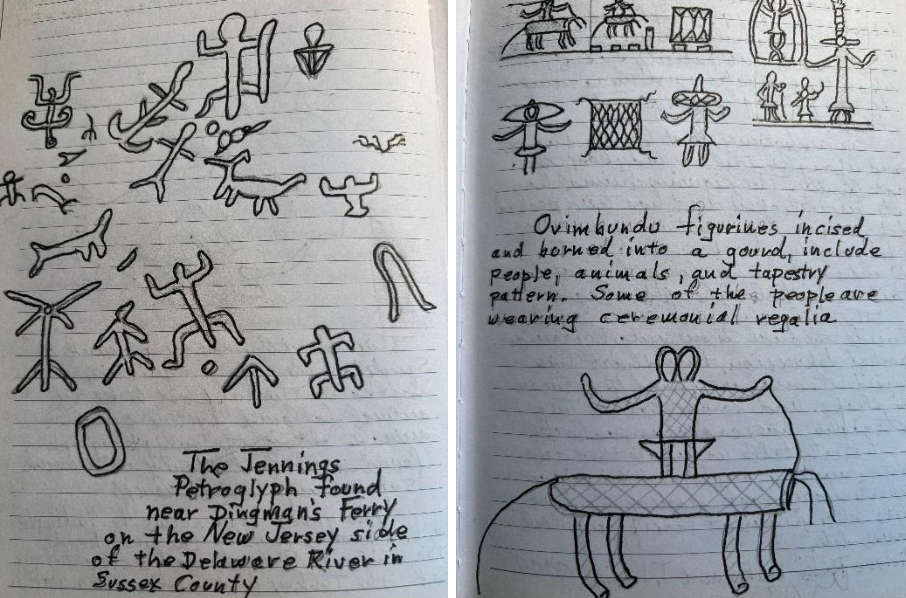 The Jennings
Petroglyph found
near Dingman's Ferry
on the New Jersey side
of the Delaware River in
Sussex County
Ovimbundu figurines incised
and borned into a gourd, include
people, animals, and tapestry
pattern. Some of the people are
wearing ceremonial regalia